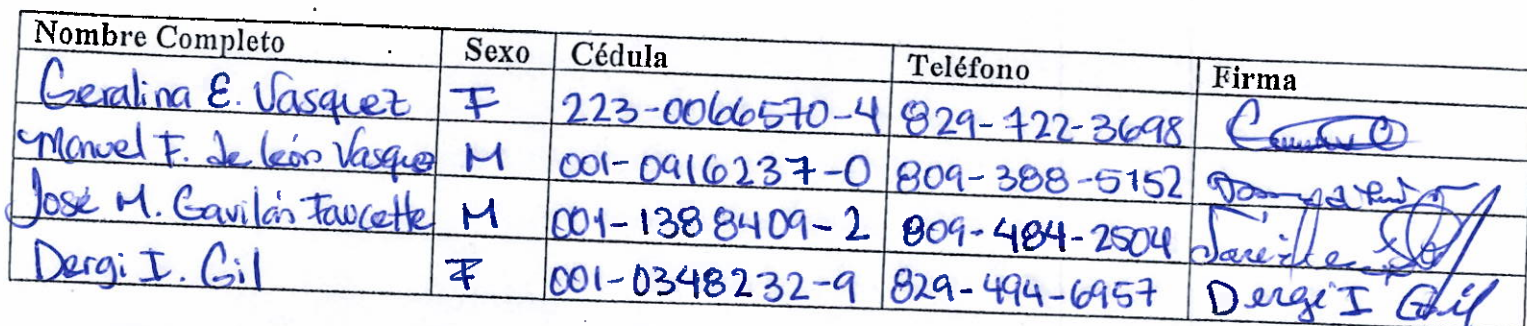 Nombre Completo Sexo Cédula Teléfono Firma
Geralina E. Vasquez F 223-0066570-4 829-722-3698
Manuel F. de león Vasquez M 001-0916237-0 809-388-5152
José M. Gavilán Faucette M 001-1388409-2 809-484-2504
Dergi I. Gil F 001-0348232-9 829-494-6957 Dergi I Gil